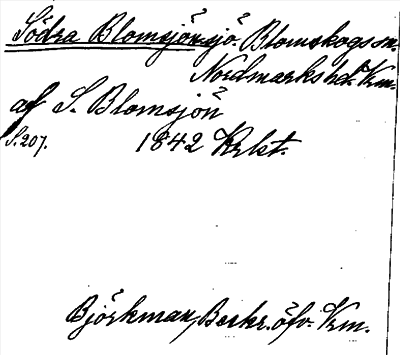 Södra Blomsjön sjö. Blomskogs sn.
Nordmarks hd. Vrm.
af S. Blomsjön
S. 207. 1842 Krkt.
Björkman, Beskr. öfv. Vrm.